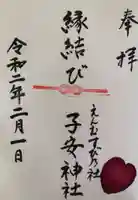 奉拝
縁結び
えんむすびの社
子安神社
令和二年二月一日